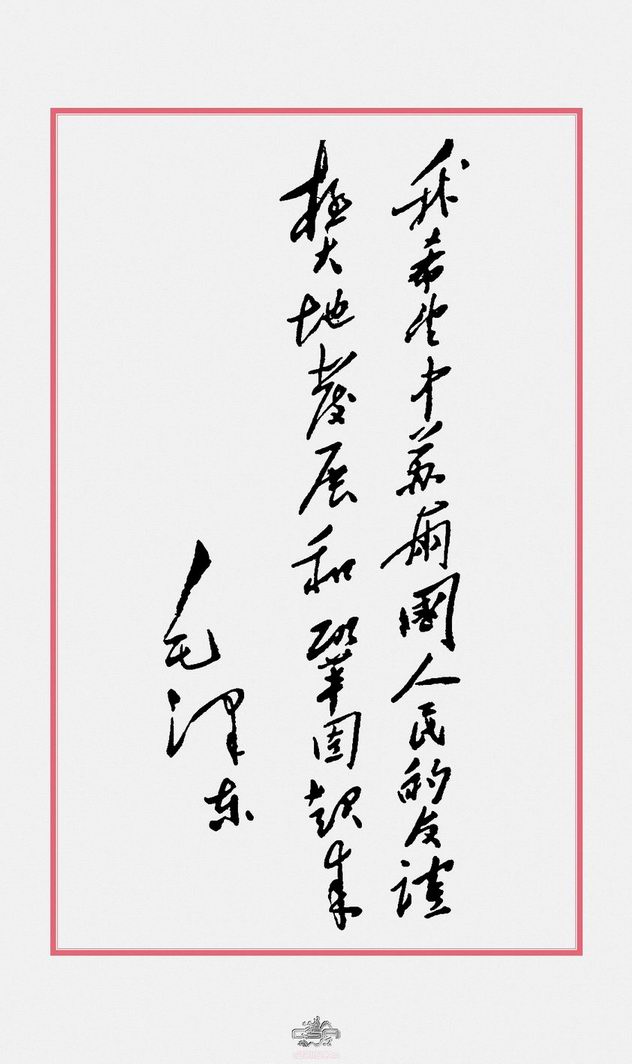 我希望中苏两國人民的友谊
極大地發展和鞏固起来
毛澤东